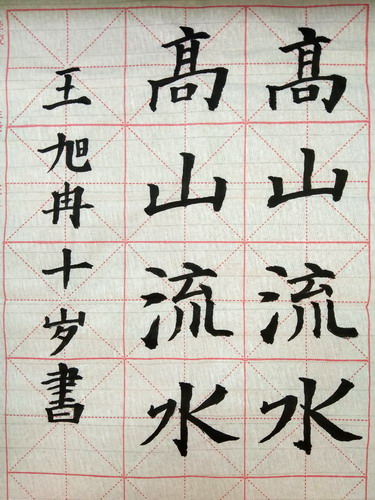 髙山流水
髙山流水
王旭冉十岁書